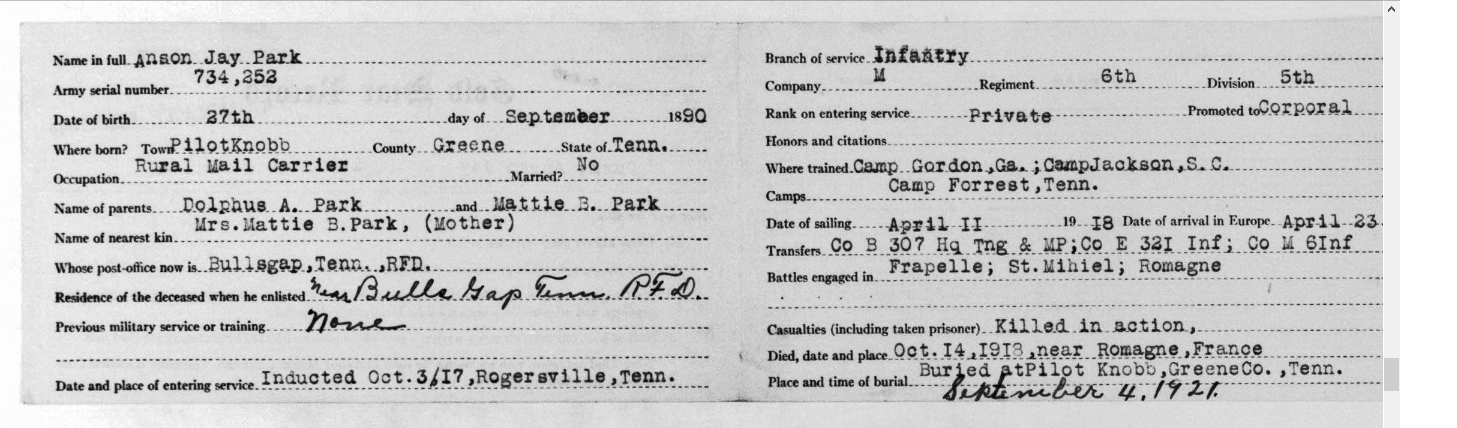 Name in full Anson Jay Park
734,252
Army serial number
Date of birth 27th day of September 1890
Where born? Town PilotKnobb County Greene State of Tenn.
Rural Mail Carrier No
Occupation Married?
Name of parents Dolphus A. Park and Mattie B. Park
Mrs.Mattie B.Park, (Mother)
Name of nearest kin
Whose post-office now is Bullsgap,Tenn.,RFD.
Residence of the deceased when he enlisted Near Bulls Gap Tenn. R.F.D.
Previous military service or training None
Date and place of entering service Inducted Oct.3/I7,Rogersville,Tenn.
Branch of service Infantry
M
Company Regiment 6th Division 5th
Rank on entering service Private Promoted to Corporal
Honors and citations
Where trained Camp Gordon,Ga.;CampJackson,S.C.
Camp Forrest,Tenn.
Camps
Date of sailing April II 19 I8 Date of arrival in Europe April 23
Transfers Co B 307 Hq Tng & MP;Co E 32I Inf; Co M 6Inf
Frapelle; St.Mihiel; Romagne
Battles engaged in
Casualties (including taken prisoner) Killed in action,
Died, date and place Oct.I4,I918,near Romagne,France
Buried atPilot Knobb,GreeneCo.,Tenn.
Place and time of burial
September 4, 1921.